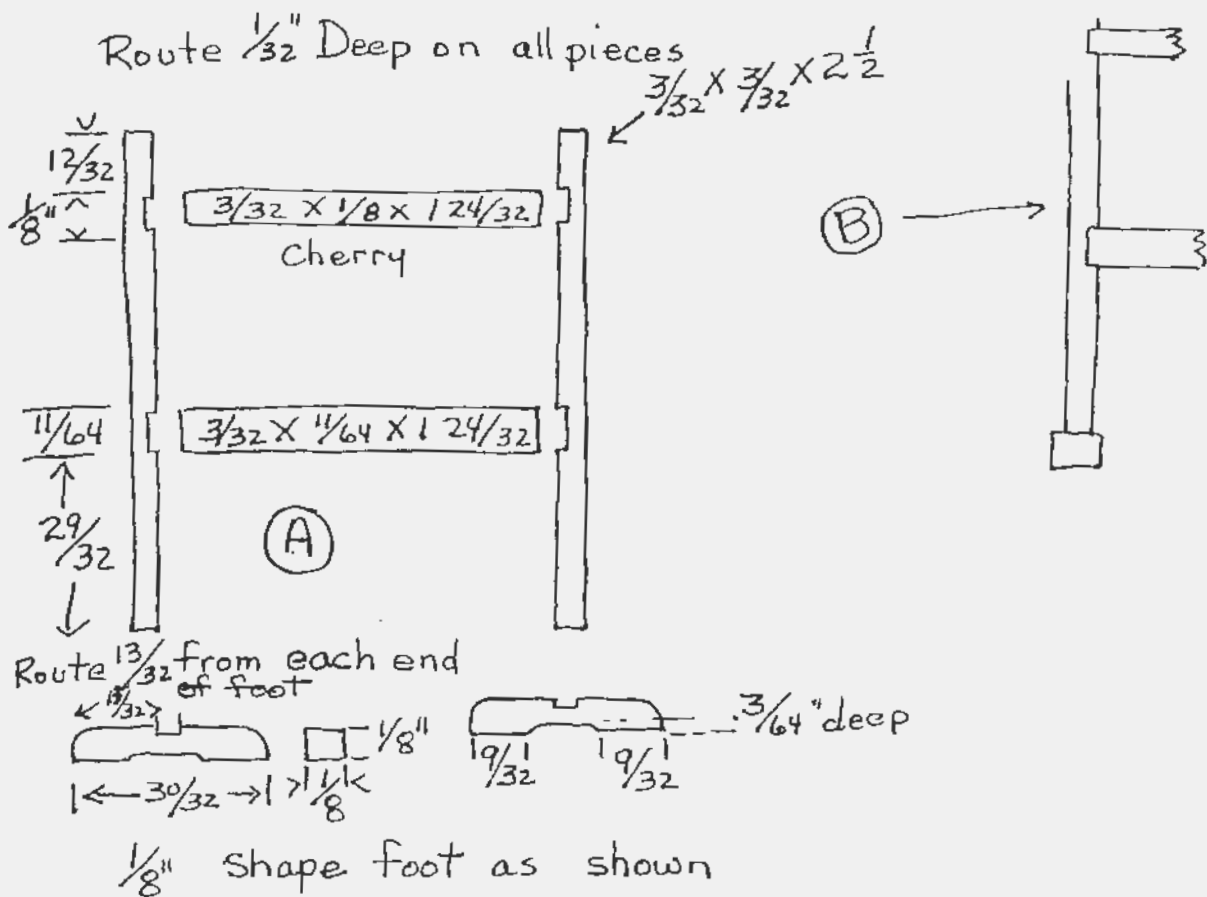 Route 1/32" Deep on all pieces
3/32 X 3/32 X 2 1/2
12/32
1/8"
3/32 X 1/8 X 1 24/32
Cherry
B
11/64
3/32 X 11/64 X 1 24/32
29/32
A
Route 13/32 from each end
of foot
13/32
1/8"
3/64" deep
30/32
1/8
9/32
9/32
1/8" shape foot as shown